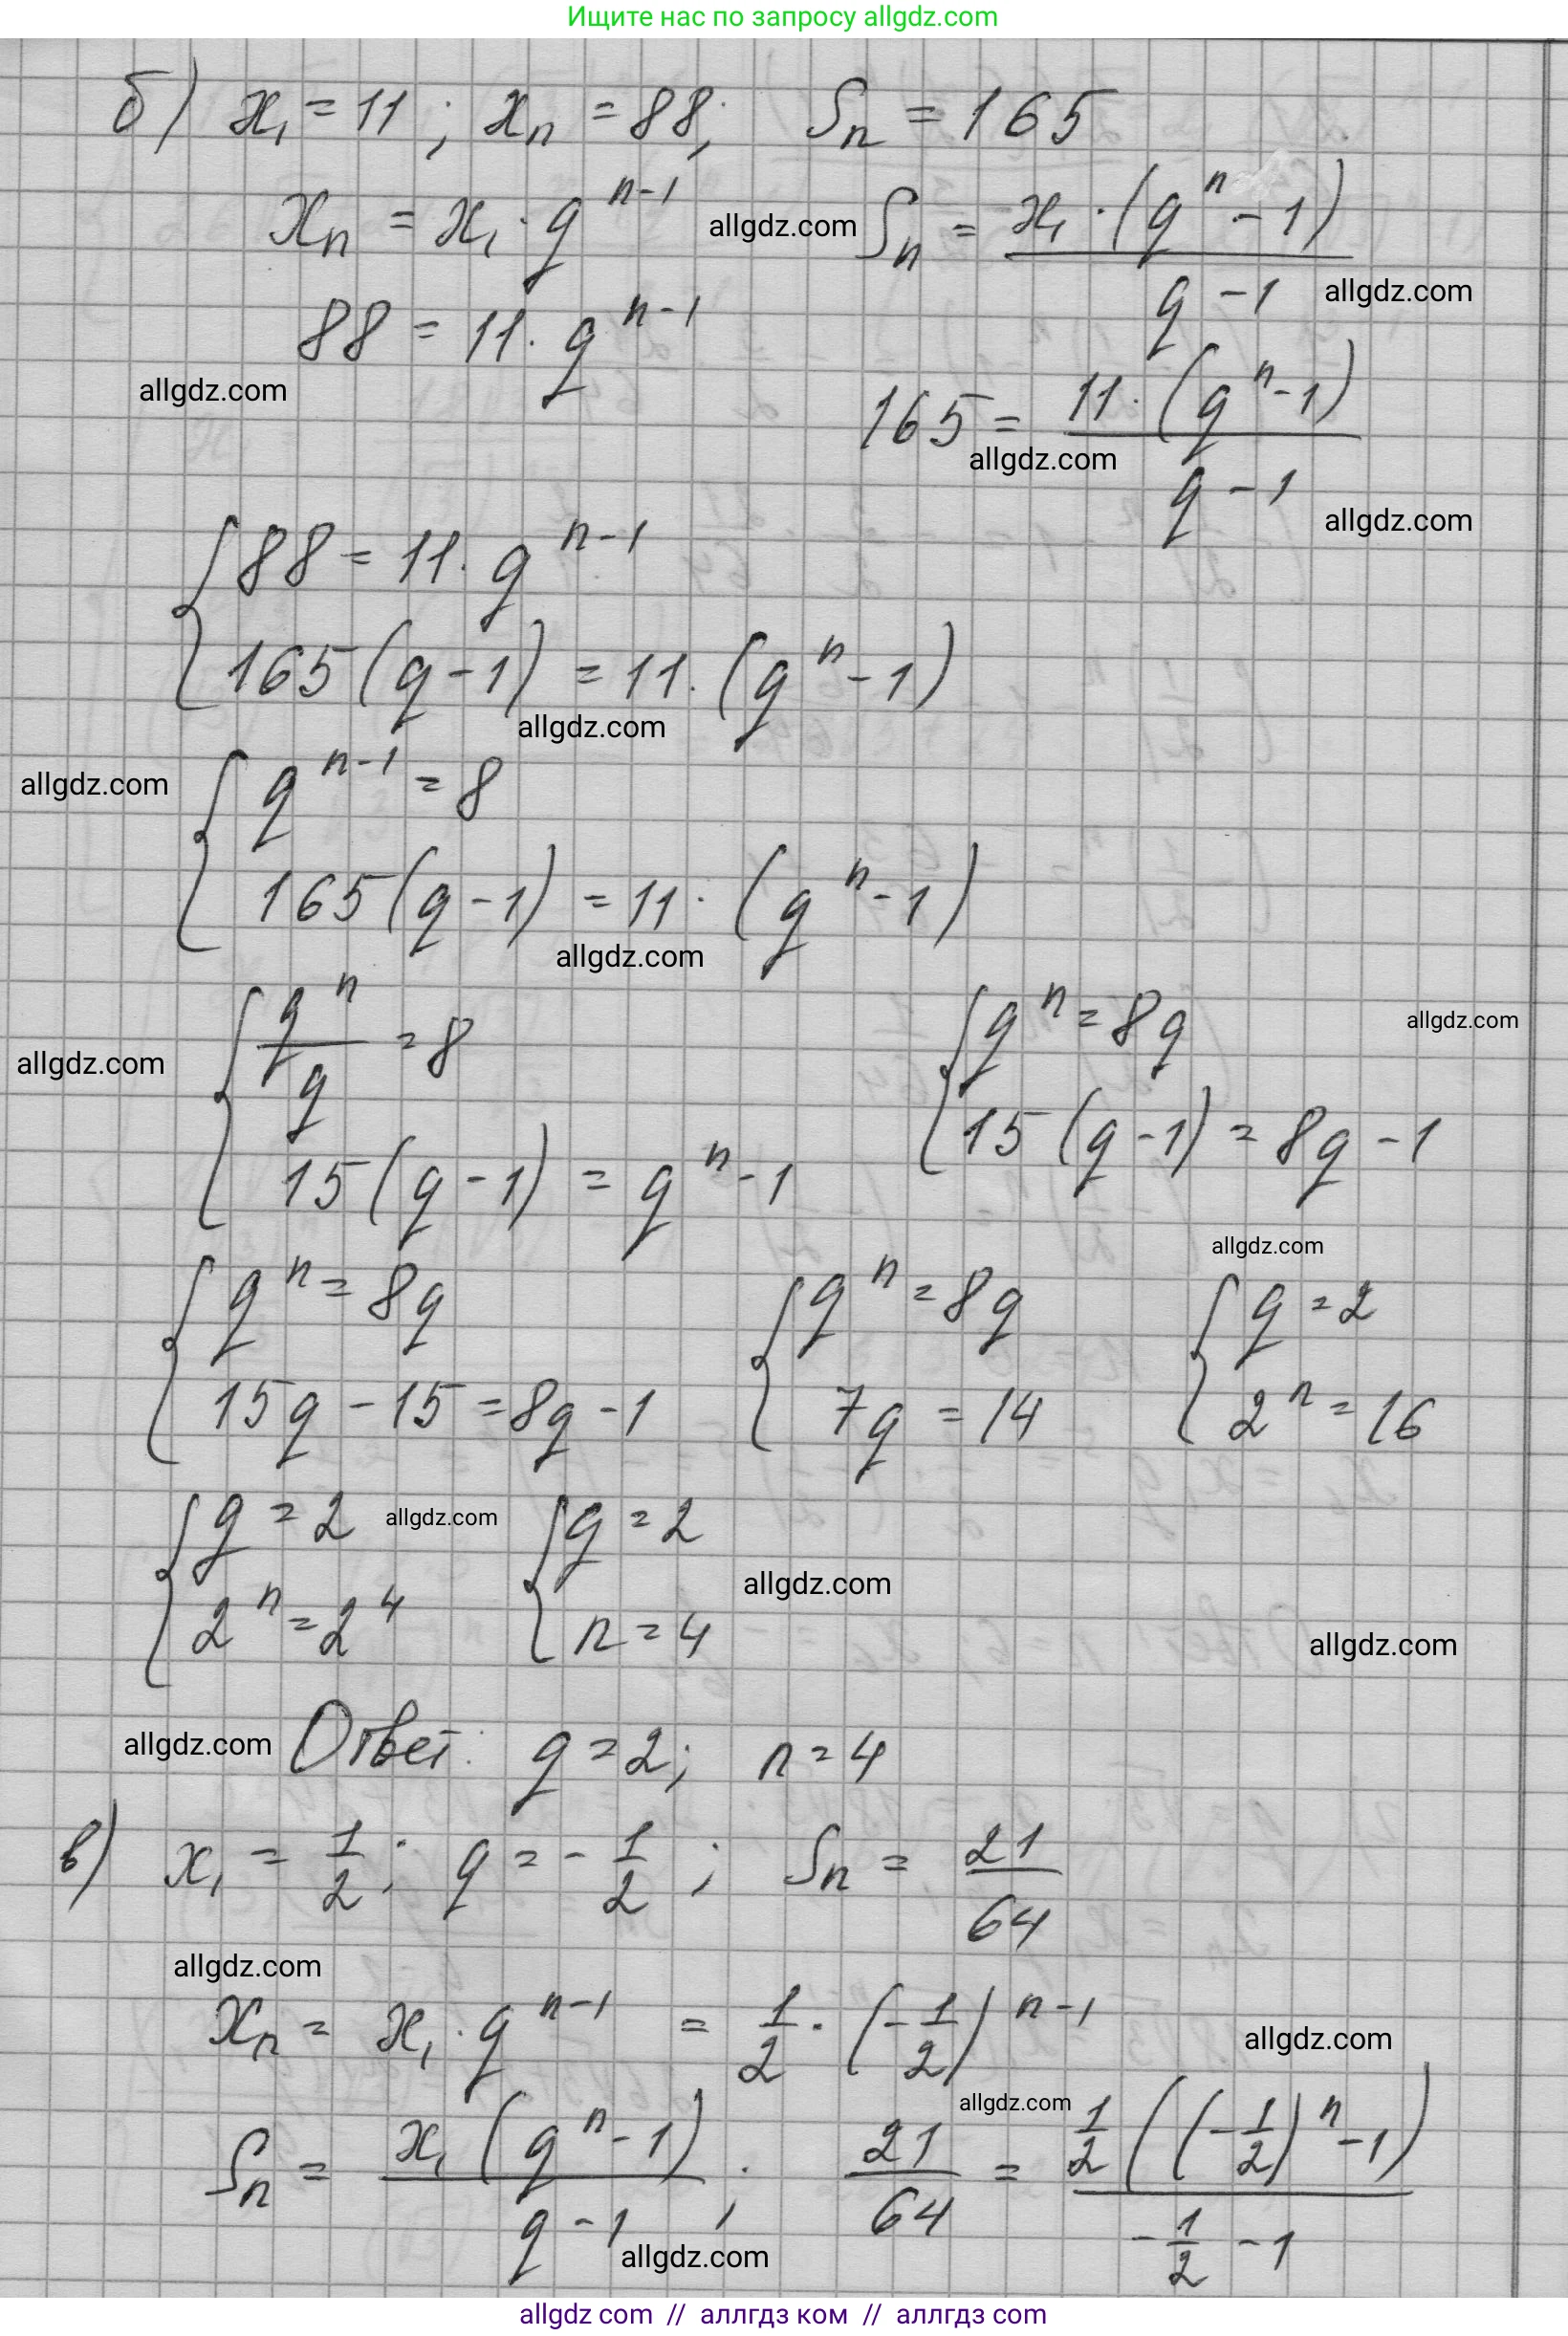 Ищите нас по запросу allgdz.com
б) x₁ = 11 ; xₙ = 88; Sₙ = 165
xₙ = x₁ · q^(n-1) allgdz.com Sₙ = x₁ · (q^n - 1) / (q - 1) allgdz.com
88 = 11 · q^(n-1)
allgdz.com
165 = 11 · (q^n - 1) / (q - 1)
allgdz.com
allgdz.com
{ 88 = 11 · q^(n-1)
165 (q - 1) = 11 · (q^n - 1)
allgdz.com
allgdz.com
{ q^(n-1) = 8
165 (q - 1) = 11 · (q^n - 1)
allgdz.com
allgdz.com
{ q^n / q = 8
15 (q - 1) = q^n - 1
{ q^n = 8q
15 (q - 1) = 8q - 1
allgdz.com
allgdz.com
{ q^n = 8q
15q - 15 = 8q - 1
{ q^n = 8q
7q = 14
{ q = 2
2^n = 16
{ q = 2
2^n = 2^4
allgdz.com
{ q = 2
n = 4
allgdz.com
allgdz.com
allgdz.com Ответ: q = 2; n = 4
в) x₁ = 1/2 ; q = - 1/2 ; Sₙ = 21/64
allgdz.com
xₙ = x₁ · q^(n-1) = 1/2 · (- 1/2)^(n-1)
allgdz.com
allgdz.com
Sₙ = x₁ (q^n - 1) / (q - 1) ; 21/64 = 1/2 ((- 1/2)^n - 1) / (- 1/2 - 1)
allgdz.com
allgdz com // аллгдз ком // аллгдз com